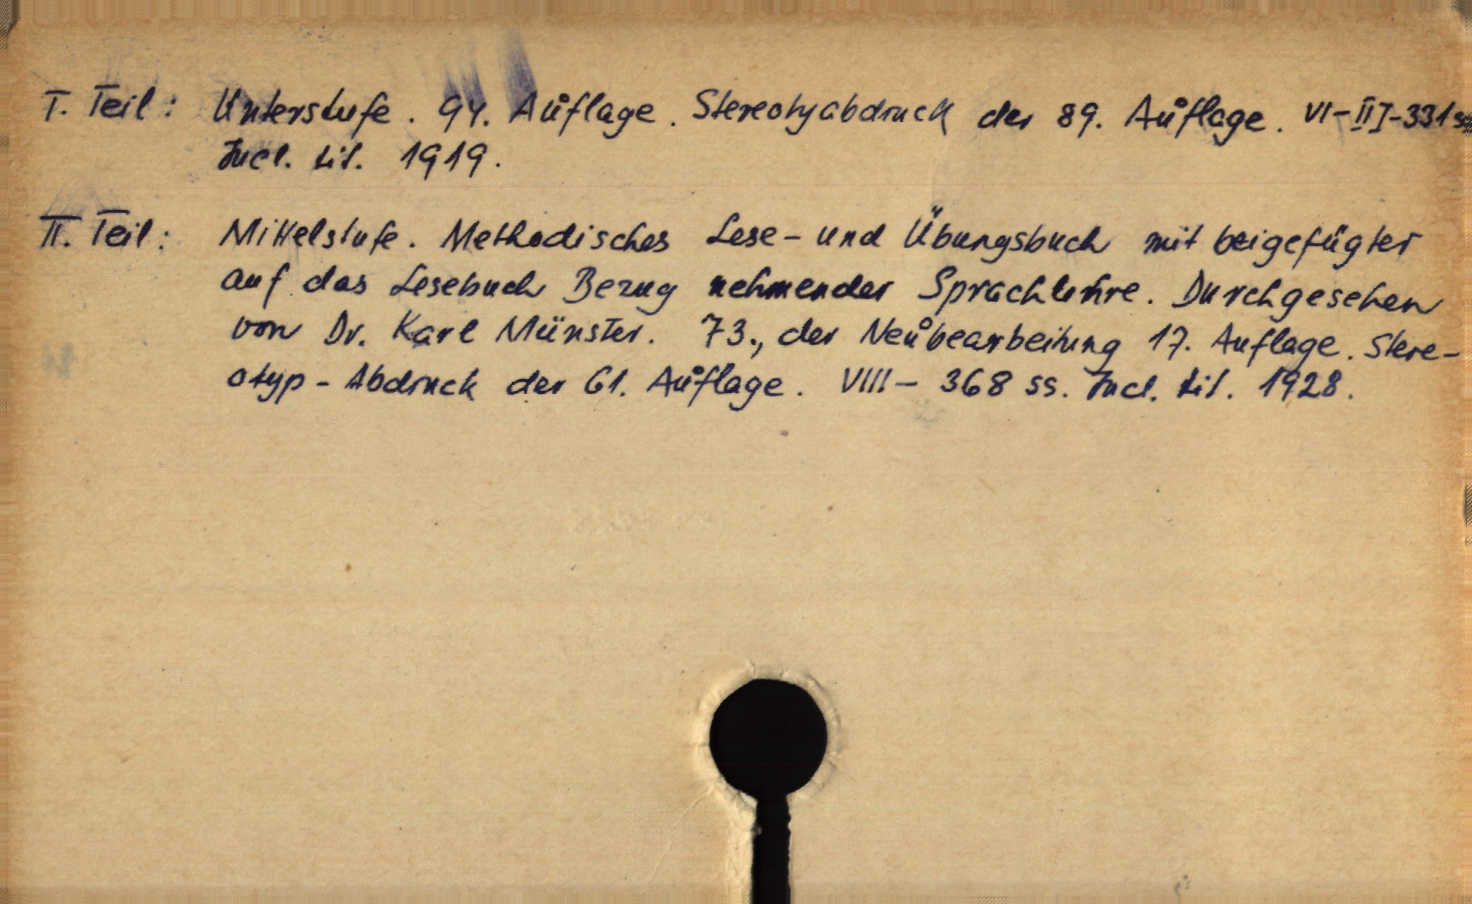 I. Teil: Unterstufe. 94. Auflage. Stereotyabdruck der 89. Auflage. VI-III-331 ss.
Incl. tit. 1919.
II. Teil: Mittelstufe. Methodisches Lese- und Übungsbuch mit beigefügter
auf das Lesebuch Bezug nehmender Sprachlehre. Durchgesehen
von Dr. Karl Münster. 73., der Neubearbeitung 17. Auflage. Stere-
otyp-Abdruck der 61. Auflage. VIII- 368 ss. Incl. tit. 1928.